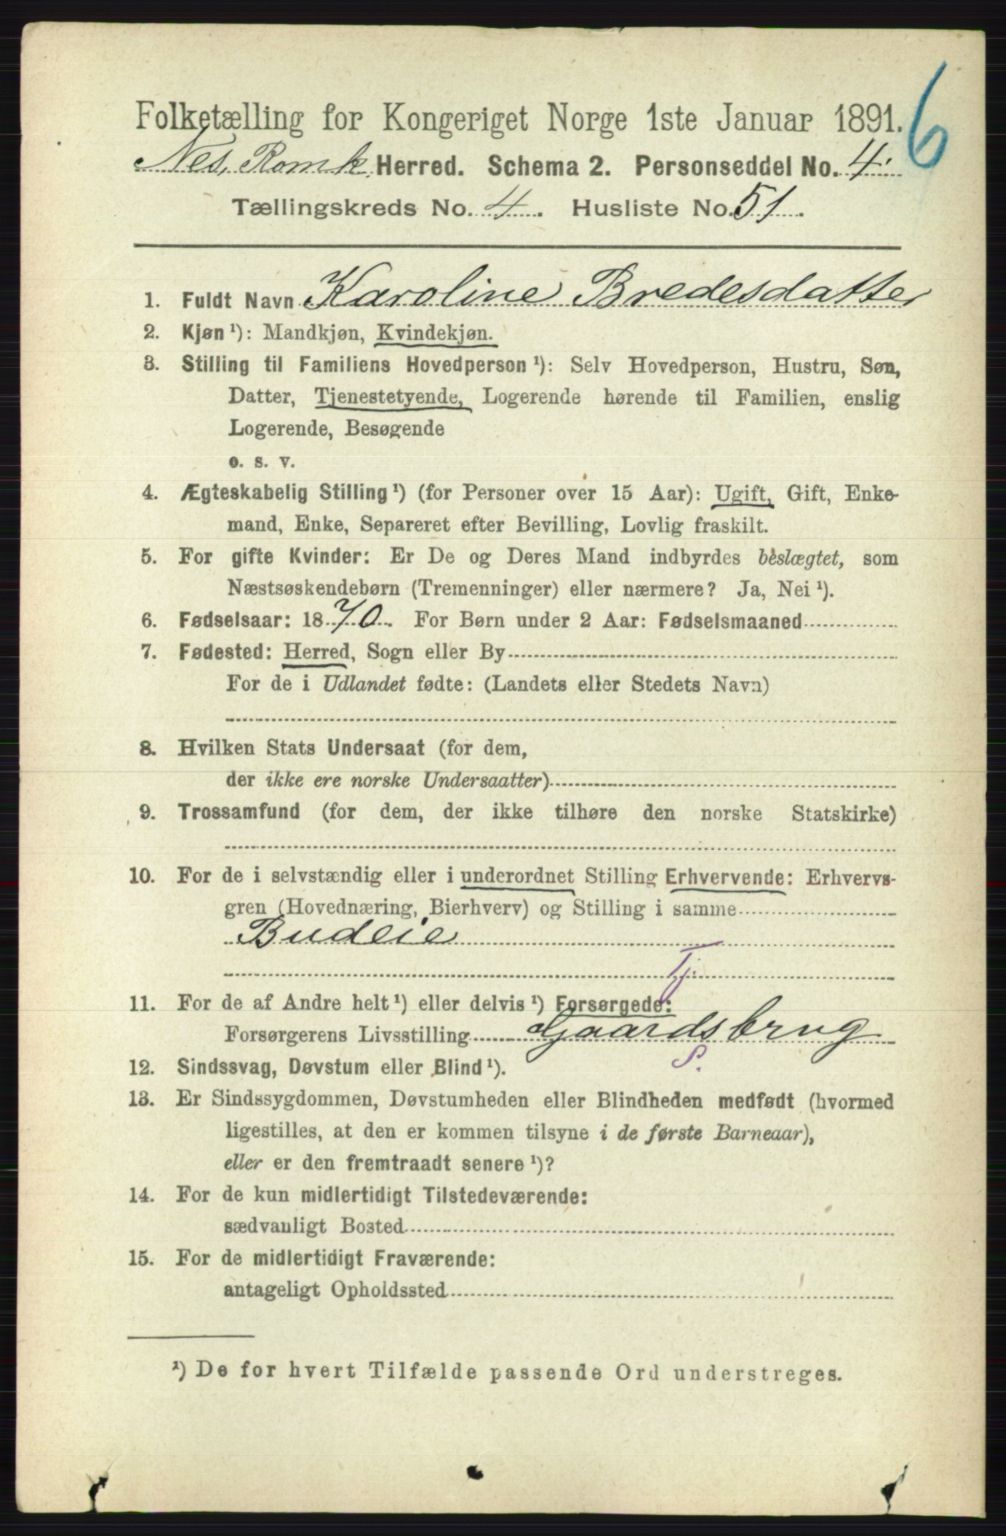 6
Folketælling for Kongeriget Norge 1ste Januar 1891.
Nes, Romk. Herred. Schema 2. Personseddel No. 4.
Tællingskreds No. 4. Husliste No. 51.
1. Fuldt Navn Karoline Bredesdatter
2. Kjøn ¹): Mandkjøn, Kvindekjøn.
3. Stilling til Familiens Hovedperson ¹): Selv Hovedperson, Hustru, Søn,
Datter, Tjenestetyende, Logerende hørende til Familien, enslig
Logerende, Besøgende
o. s. v.
4. Ægteskabelig Stilling ¹) (for Personer over 15 Aar): Ugift, Gift, Enke-
mand, Enke, Separeret efter Bevilling, Lovlig fraskilt.
5. For gifte Kvinder: Er De og Deres Mand indbyrdes beslægtet, som
Næstsøskendebørn (Tremenninger) eller nærmere? Ja, Nei ¹).
6. Fødselsaar: 1870. For Børn under 2 Aar: Fødselsmaaned
7. Fødested: Herred, Sogn eller By
For de i Udlandet fødte: (Landets eller Stedets Navn)
8. Hvilken Stats Undersaat (for dem,
der ikke ere norske Undersaatter)
9. Trossamfund (for dem, der ikke tilhøre den norske Statskirke)
10. For de i selvstændig eller i underordnet Stilling Erhvervende: Erhvervs-
gren (Hovednæring, Bierhverv) og Stilling i samme
Budeie
Tj.
11. For de af Andre helt ¹) eller delvis ¹) Forsørgede:
Forsørgerens Livsstilling Gaardsbrug
S.
12. Sindssvag, Døvstum eller Blind ¹).
13. Er Sindssygdommen, Døvstumheden eller Blindheden medfødt (hvormed
ligestilles, at den er kommen tilsyne i de første Barneaar),
eller er den fremtraadt senere ¹)?
14. For de kun midlertidigt Tilstedeværende:
sædvanligt Bosted
15. For de midlertidigt Fraværende:
antageligt Opholdssted
¹) De for hvert Tilfælde passende Ord understreges.